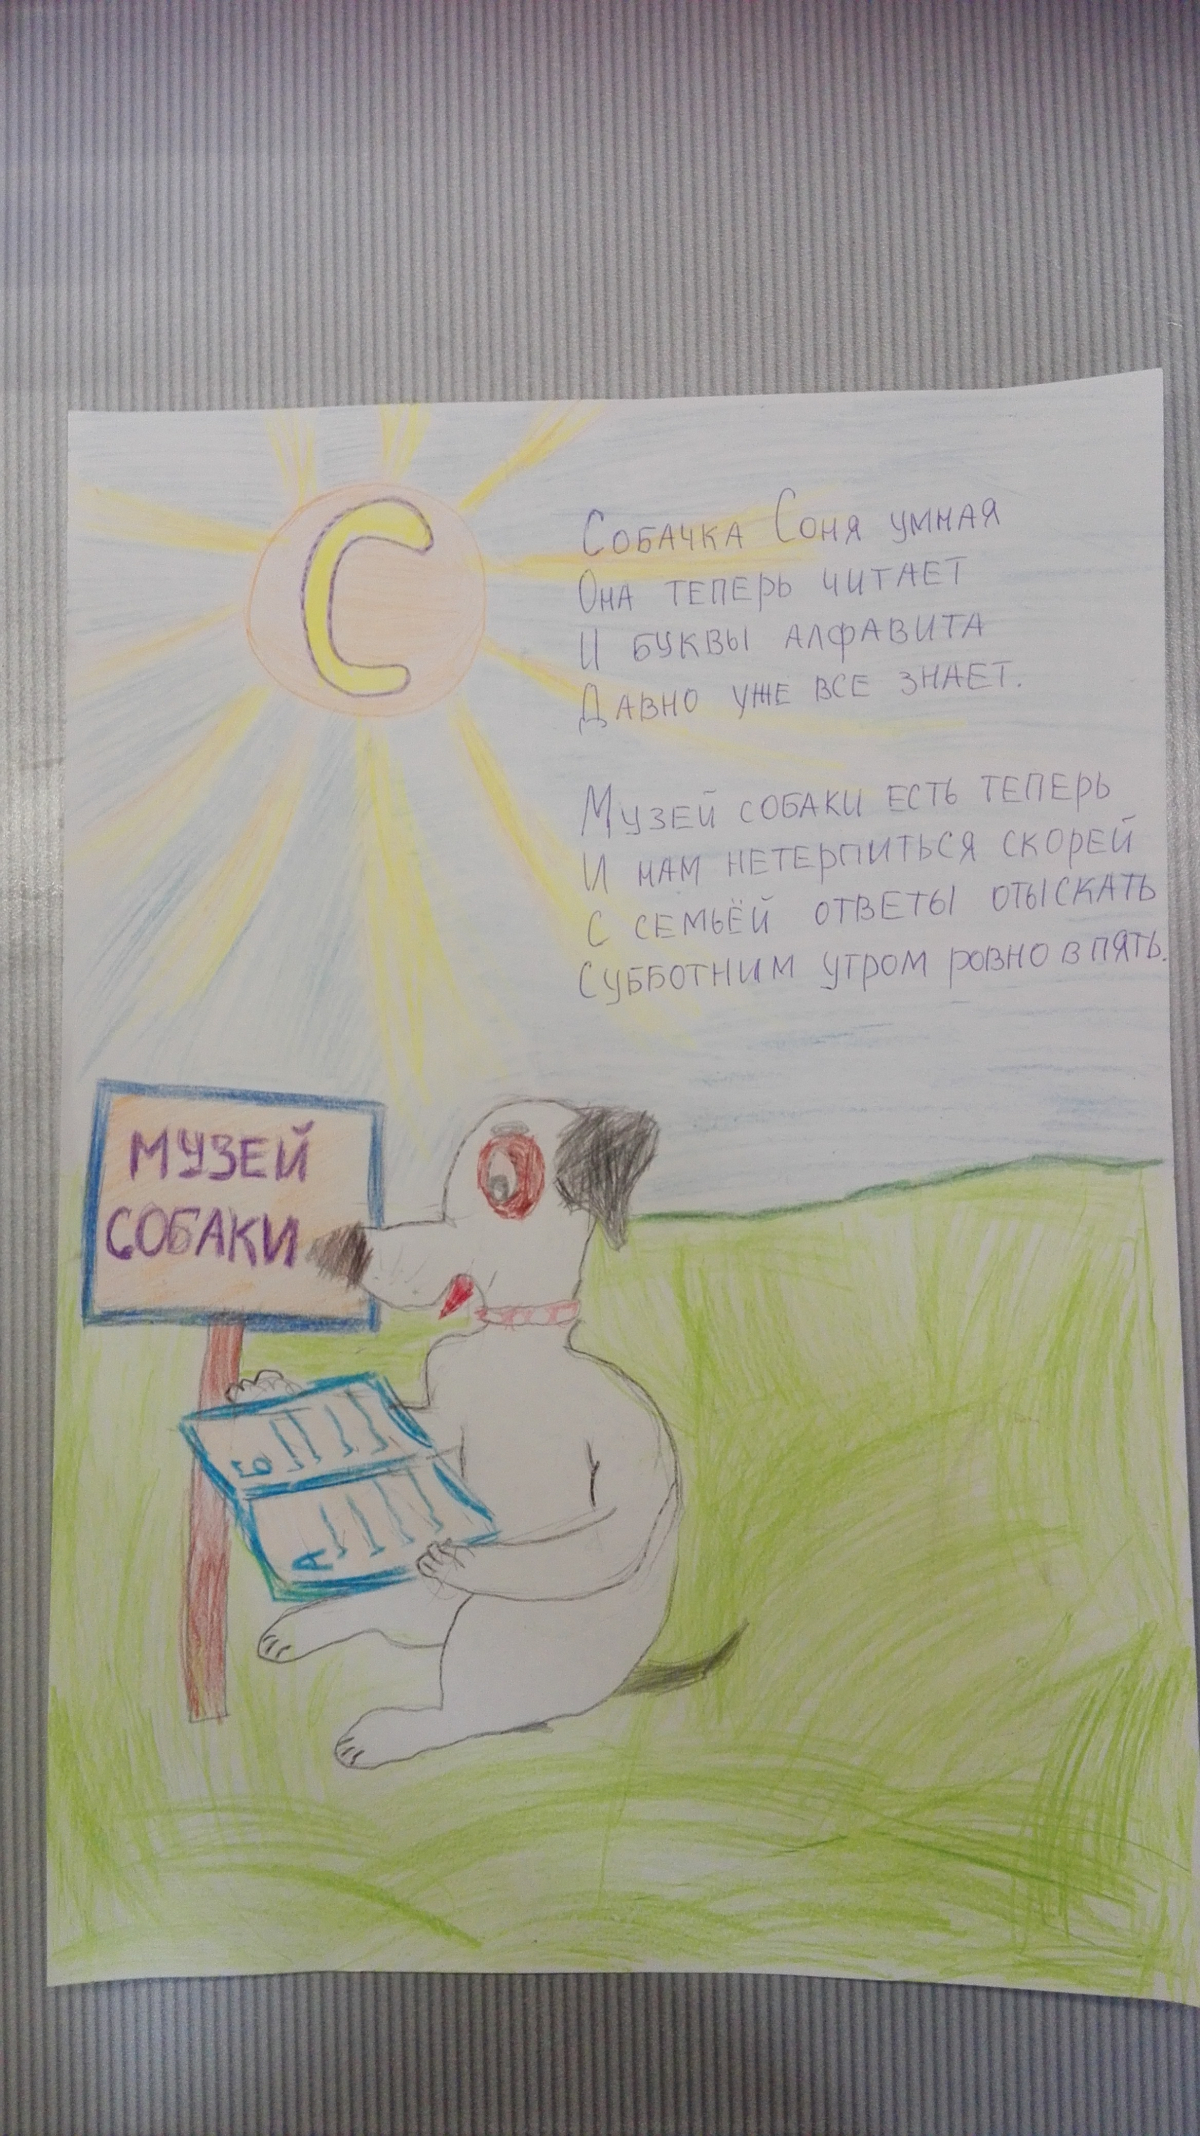 С
Собачка Соня умная
Она теперь читает
И буквы алфавита
Давно уже все знает.
Музей собаки есть теперь
И нам нетерпиться скорей
С семьёй ответы отыскать
Субботним утром ровно в пять.
МУЗЕЙ
СОБАКИ
Б
А